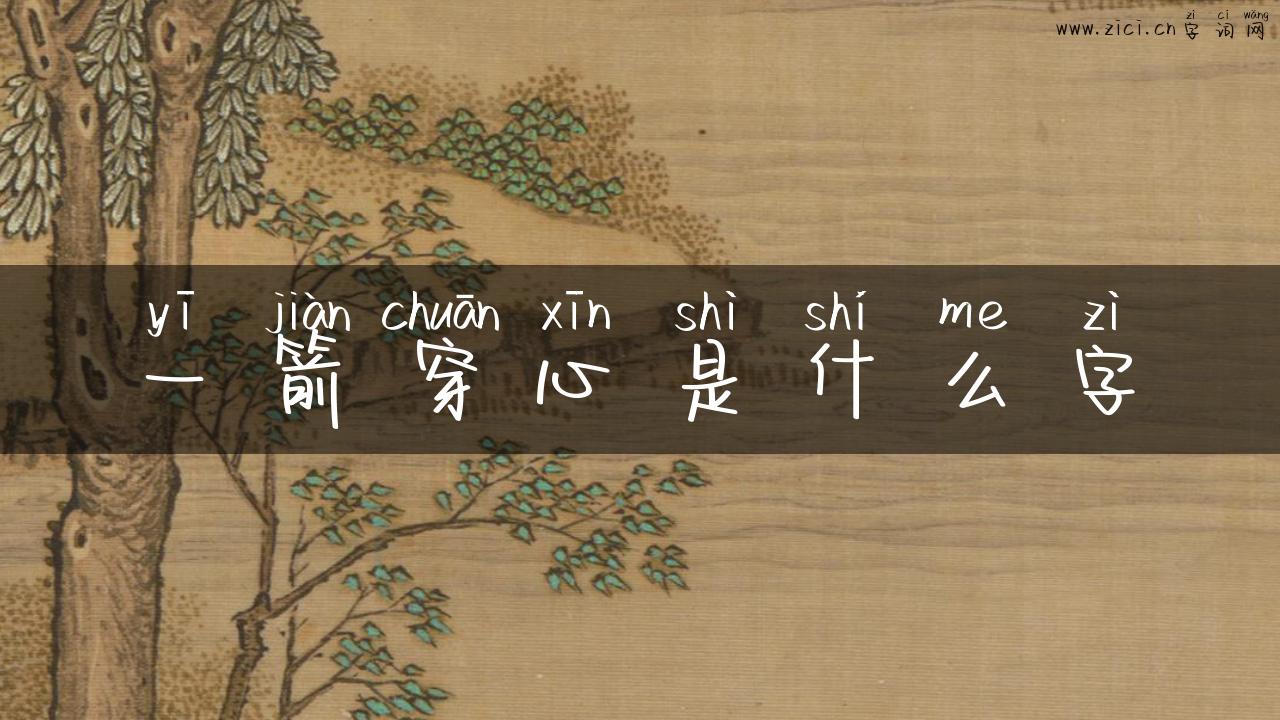 zì cí wǎng
www.zici.cn字词网
yī jiàn chuān xīn shì shí me zì
一箭穿心是什么字